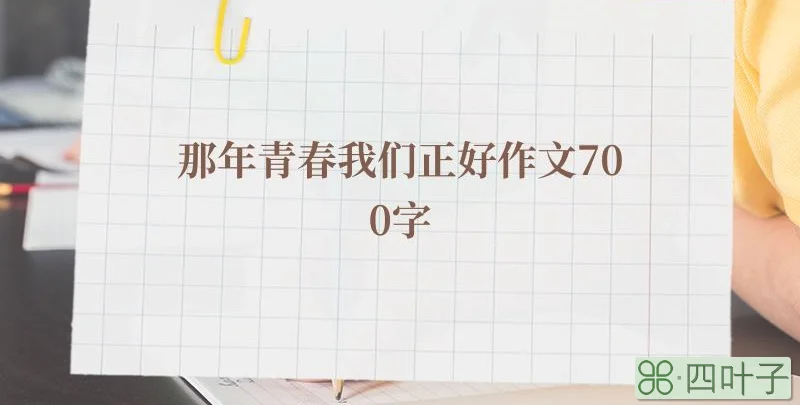 那年青春我们正好作文70
0字
四叶子